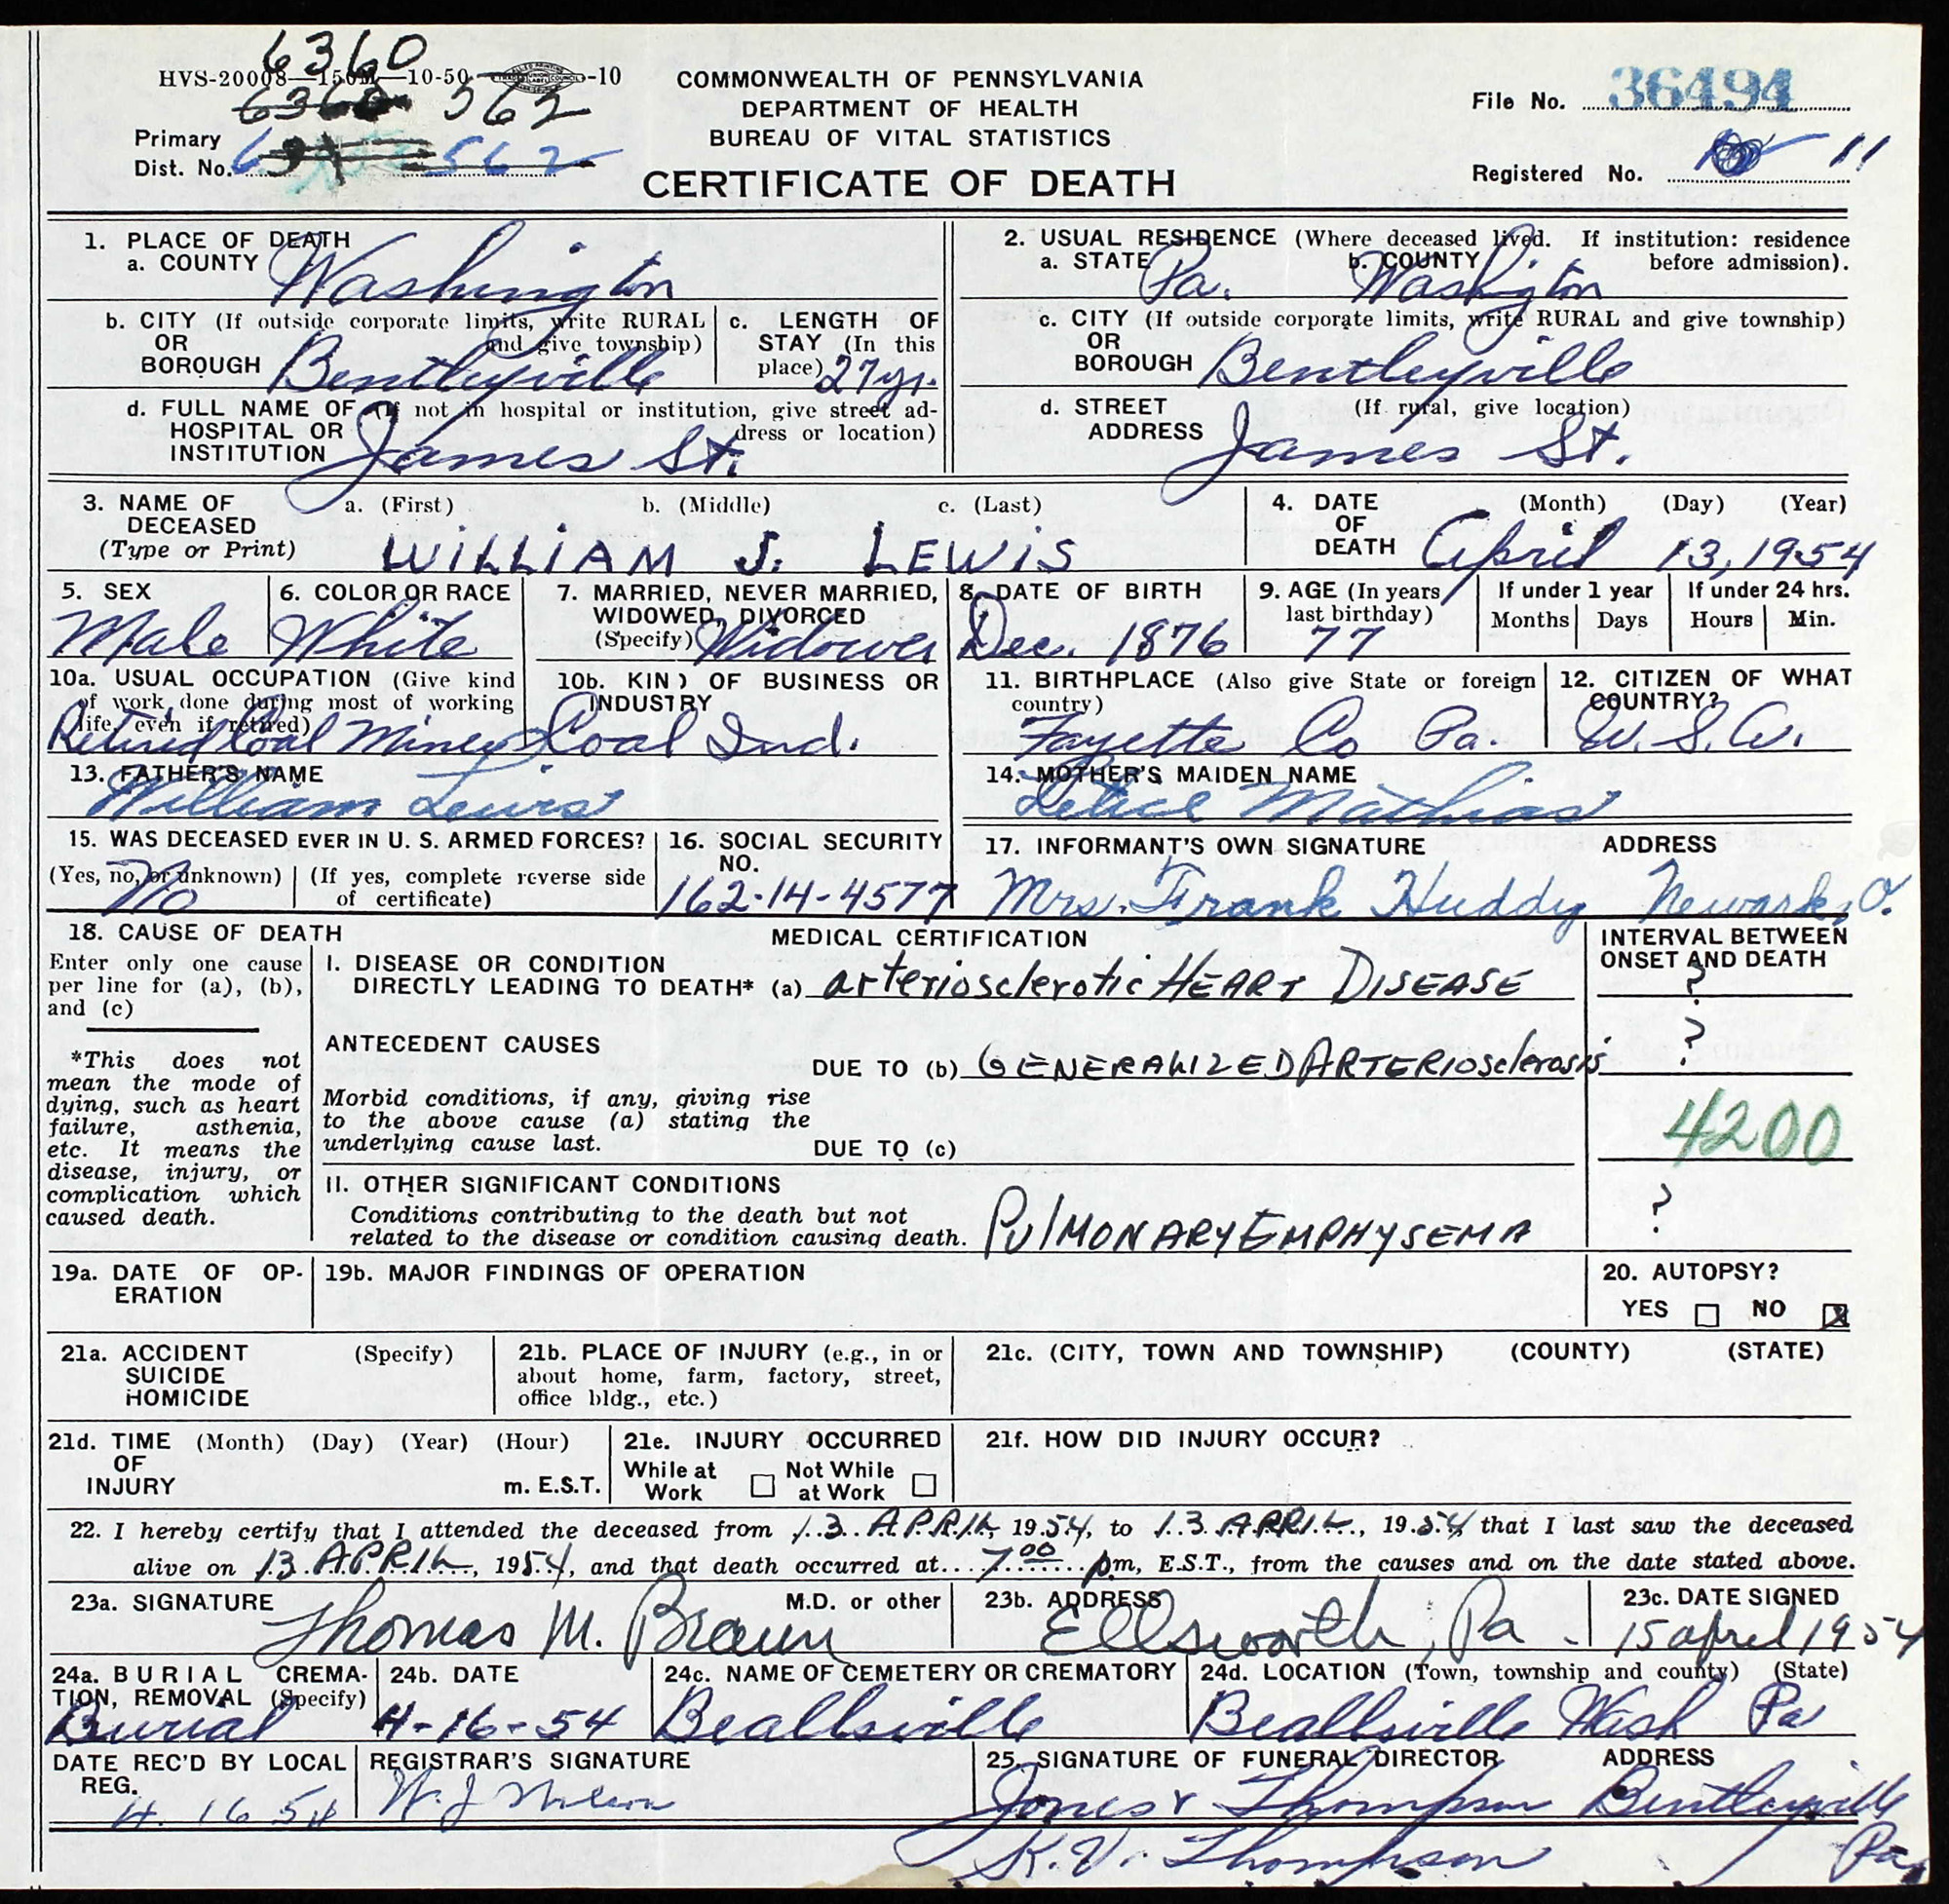 6360
HVS-20008—150M—10-50 -10
6360 562
COMMONWEALTH OF PENNSYLVANIA
DEPARTMENT OF HEALTH
BUREAU OF VITAL STATISTICS
CERTIFICATE OF DEATH
File No. 36494
Primary
Dist. No. 562
Registered No. 11
1. PLACE OF DEATH
a. COUNTY Washington
2. USUAL RESIDENCE (Where deceased lived. If institution: residence before admission).
a. STATE Pa. b. COUNTY Washington
b. CITY (If outside corporate limits, write RURAL and give township)
OR
BOROUGH Bentleyville
c. LENGTH OF STAY (In this place) 27 yr.
c. CITY (If outside corporate limits, write RURAL and give township)
OR
BOROUGH Bentleyville
d. FULL NAME OF (If not in hospital or institution, give street address or location)
HOSPITAL OR
INSTITUTION James St.
d. STREET (If rural, give location)
ADDRESS James St.
3. NAME OF DECEASED (Type or Print)
a. (First) b. (Middle) c. (Last)
WILLIAM J. LEWIS
4. DATE OF DEATH (Month) (Day) (Year)
April 13, 1954
5. SEX
Male
6. COLOR OR RACE
White
7. MARRIED, NEVER MARRIED, WIDOWED, DIVORCED (Specify) Widower
8. DATE OF BIRTH
Dec. 1876
9. AGE (In years last birthday)
77
If under 1 year
Months Days
If under 24 hrs.
Hours Min.
10a. USUAL OCCUPATION (Give kind of work done during most of working life, even if retired)
Retired Coal Miner
10b. KIND OF BUSINESS OR INDUSTRY
Coal Ind.
11. BIRTHPLACE (Also give State or foreign country)
Fayette Co Pa.
12. CITIZEN OF WHAT COUNTRY?
U.S.A.
13. FATHER'S NAME
William Lewis
14. MOTHER'S MAIDEN NAME
Mathias
15. WAS DECEASED EVER IN U. S. ARMED FORCES?
(Yes, no, or unknown) (If yes, complete reverse side of certificate)
No
16. SOCIAL SECURITY NO.
162-14-4577
17. INFORMANT'S OWN SIGNATURE ADDRESS
Mrs. Frank Huddy Newark, O.
18. CAUSE OF DEATH
Enter only one cause per line for (a), (b), and (c)
*This does not mean the mode of dying, such as heart failure, asthenia, etc. It means the disease, injury, or complication which caused death.
MEDICAL CERTIFICATION
INTERVAL BETWEEN ONSET AND DEATH
I. DISEASE OR CONDITION
DIRECTLY LEADING TO DEATH* (a) arteriosclerotic HEART DISEASE ?
ANTECEDENT CAUSES
DUE TO (b) GENERALIZED ARTERIOsclerosis ?
Morbid conditions, if any, giving rise to the above cause (a) stating the underlying cause last.
DUE TO (c)
4200
II. OTHER SIGNIFICANT CONDITIONS
Conditions contributing to the death but not related to the disease or condition causing death. PulMONARY EMPHYSEMA ?
19a. DATE OF OPERATION
19b. MAJOR FINDINGS OF OPERATION
20. AUTOPSY?
YES NO X
21a. ACCIDENT SUICIDE HOMICIDE (Specify)
21b. PLACE OF INJURY (e.g., in or about home, farm, factory, street, office bldg., etc.)
21c. (CITY, TOWN AND TOWNSHIP) (COUNTY) (STATE)
21d. TIME OF INJURY (Month) (Day) (Year) (Hour)
m. E.S.T.
21e. INJURY OCCURRED
While at Work Not While at Work
21f. HOW DID INJURY OCCUR?
22. I hereby certify that I attended the deceased from 13 APRIL, 1954, to 13 APRIL, 1954 that I last saw the deceased
alive on 13 APRIL, 1954, and that death occurred at 7:00 pm, E.S.T., from the causes and on the date stated above.
23a. SIGNATURE M.D. or other
Thomas M. Braun
23b. ADDRESS
Ellsworth, Pa.
23c. DATE SIGNED
15 april 1954
24a. BURIAL CREMATION, REMOVAL (Specify)
Burial
24b. DATE
4-16-54
24c. NAME OF CEMETERY OR CREMATORY
Beallsville
24d. LOCATION (Town, township and county) (State)
Beallsville Wash Pa
DATE REC'D BY LOCAL REG.
4. 16 54
REGISTRAR'S SIGNATURE
W. J.
25. SIGNATURE OF FUNERAL DIRECTOR ADDRESS
Jones & Thompson Bentleyville
K.V. Thompson Pa.